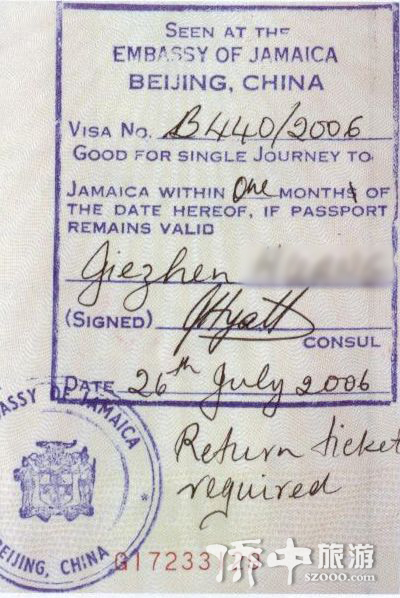 SEEN AT THE
EMBASSY OF JAMAICA
BEIJING, CHINA
VISA NO. B440/2006
GOOD FOR SINGLE JOURNEY TO
JAMAICA WITHIN One MONTHS OF
THE DATE HEREOF, IF PASSPORT
REMAINS VALID
Giezhen
(SIGNED) Hyatt
CONSUL
DATE 26th July 2006
Return ticket
required
EMBASSY OF JAMAICA
BEIJING, CHINA
G17233
侨中旅游
szooo.com